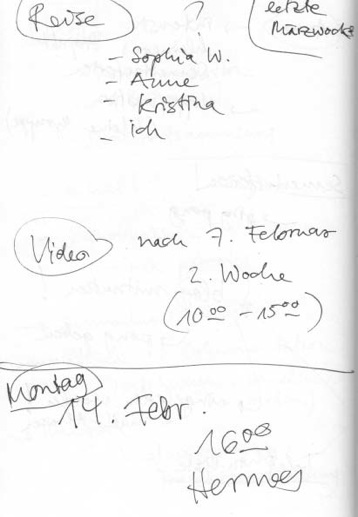 Reise ? letzte
Märzwoche
- Sophia W.
- Anne
- Kristina
- ich
Video nach 7. Februar
2. Woche
(10 00 - 15 00)
Montag
14. Febr.
16 00
Hermes